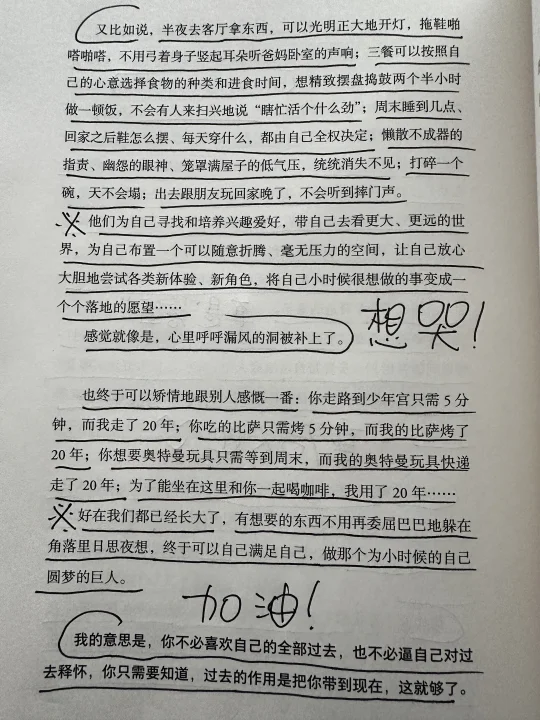 又比如说，半夜去客厅拿东西，可以光明正大地开灯，拖鞋啪
嗒啪嗒，不用弓着身子竖起耳朵听爸妈卧室的声响；三餐可以按照自
己的心意选择食物的种类和进食时间，想精致摆盘捣鼓两个半小时
做一顿饭，不会有人来扫兴地说“瞎忙活个什么劲”；周末睡到几点、
回家之后鞋怎么摆、每天穿什么，都由自己全权决定；懒散不成器的
指责、幽怨的眼神、笼罩满屋子的低气压，统统消失不见；打碎一个
碗，天不会塌；出去跟朋友玩回家晚了，不会听到摔门声。
※他们为自己寻找和培养兴趣爱好，带自己去看更大、更远的世
界，为自己布置一个可以随意折腾、毫无压力的空间，让自己放心
大胆地尝试各类新体验、新角色，将自己小时候很想做的事变成一
个个落地的愿望……
感觉就像是，心里呼呼漏风的洞被补上了。
想哭！
也终于可以矫情地跟别人感慨一番：你走路到少年宫只需 5 分
钟，而我走了 20 年；你吃的比萨只需烤 5 分钟，而我的比萨烤了
20 年；你想要奥特曼玩具只需等到周末，而我的奥特曼玩具快递
走了 20 年；为了能坐在这里和你一起喝咖啡，我用了 20 年……
※好在我们都已经长大了，有想要的东西不用再委屈巴巴地躲在
角落里日思夜想，终于可以自己满足自己，做那个为小时候的自己
圆梦的巨人。
加油！
我的意思是，你不必喜欢自己的全部过去，也不必逼自己对过
去释怀，你只需要知道，过去的作用是把你带到现在，这就够了。